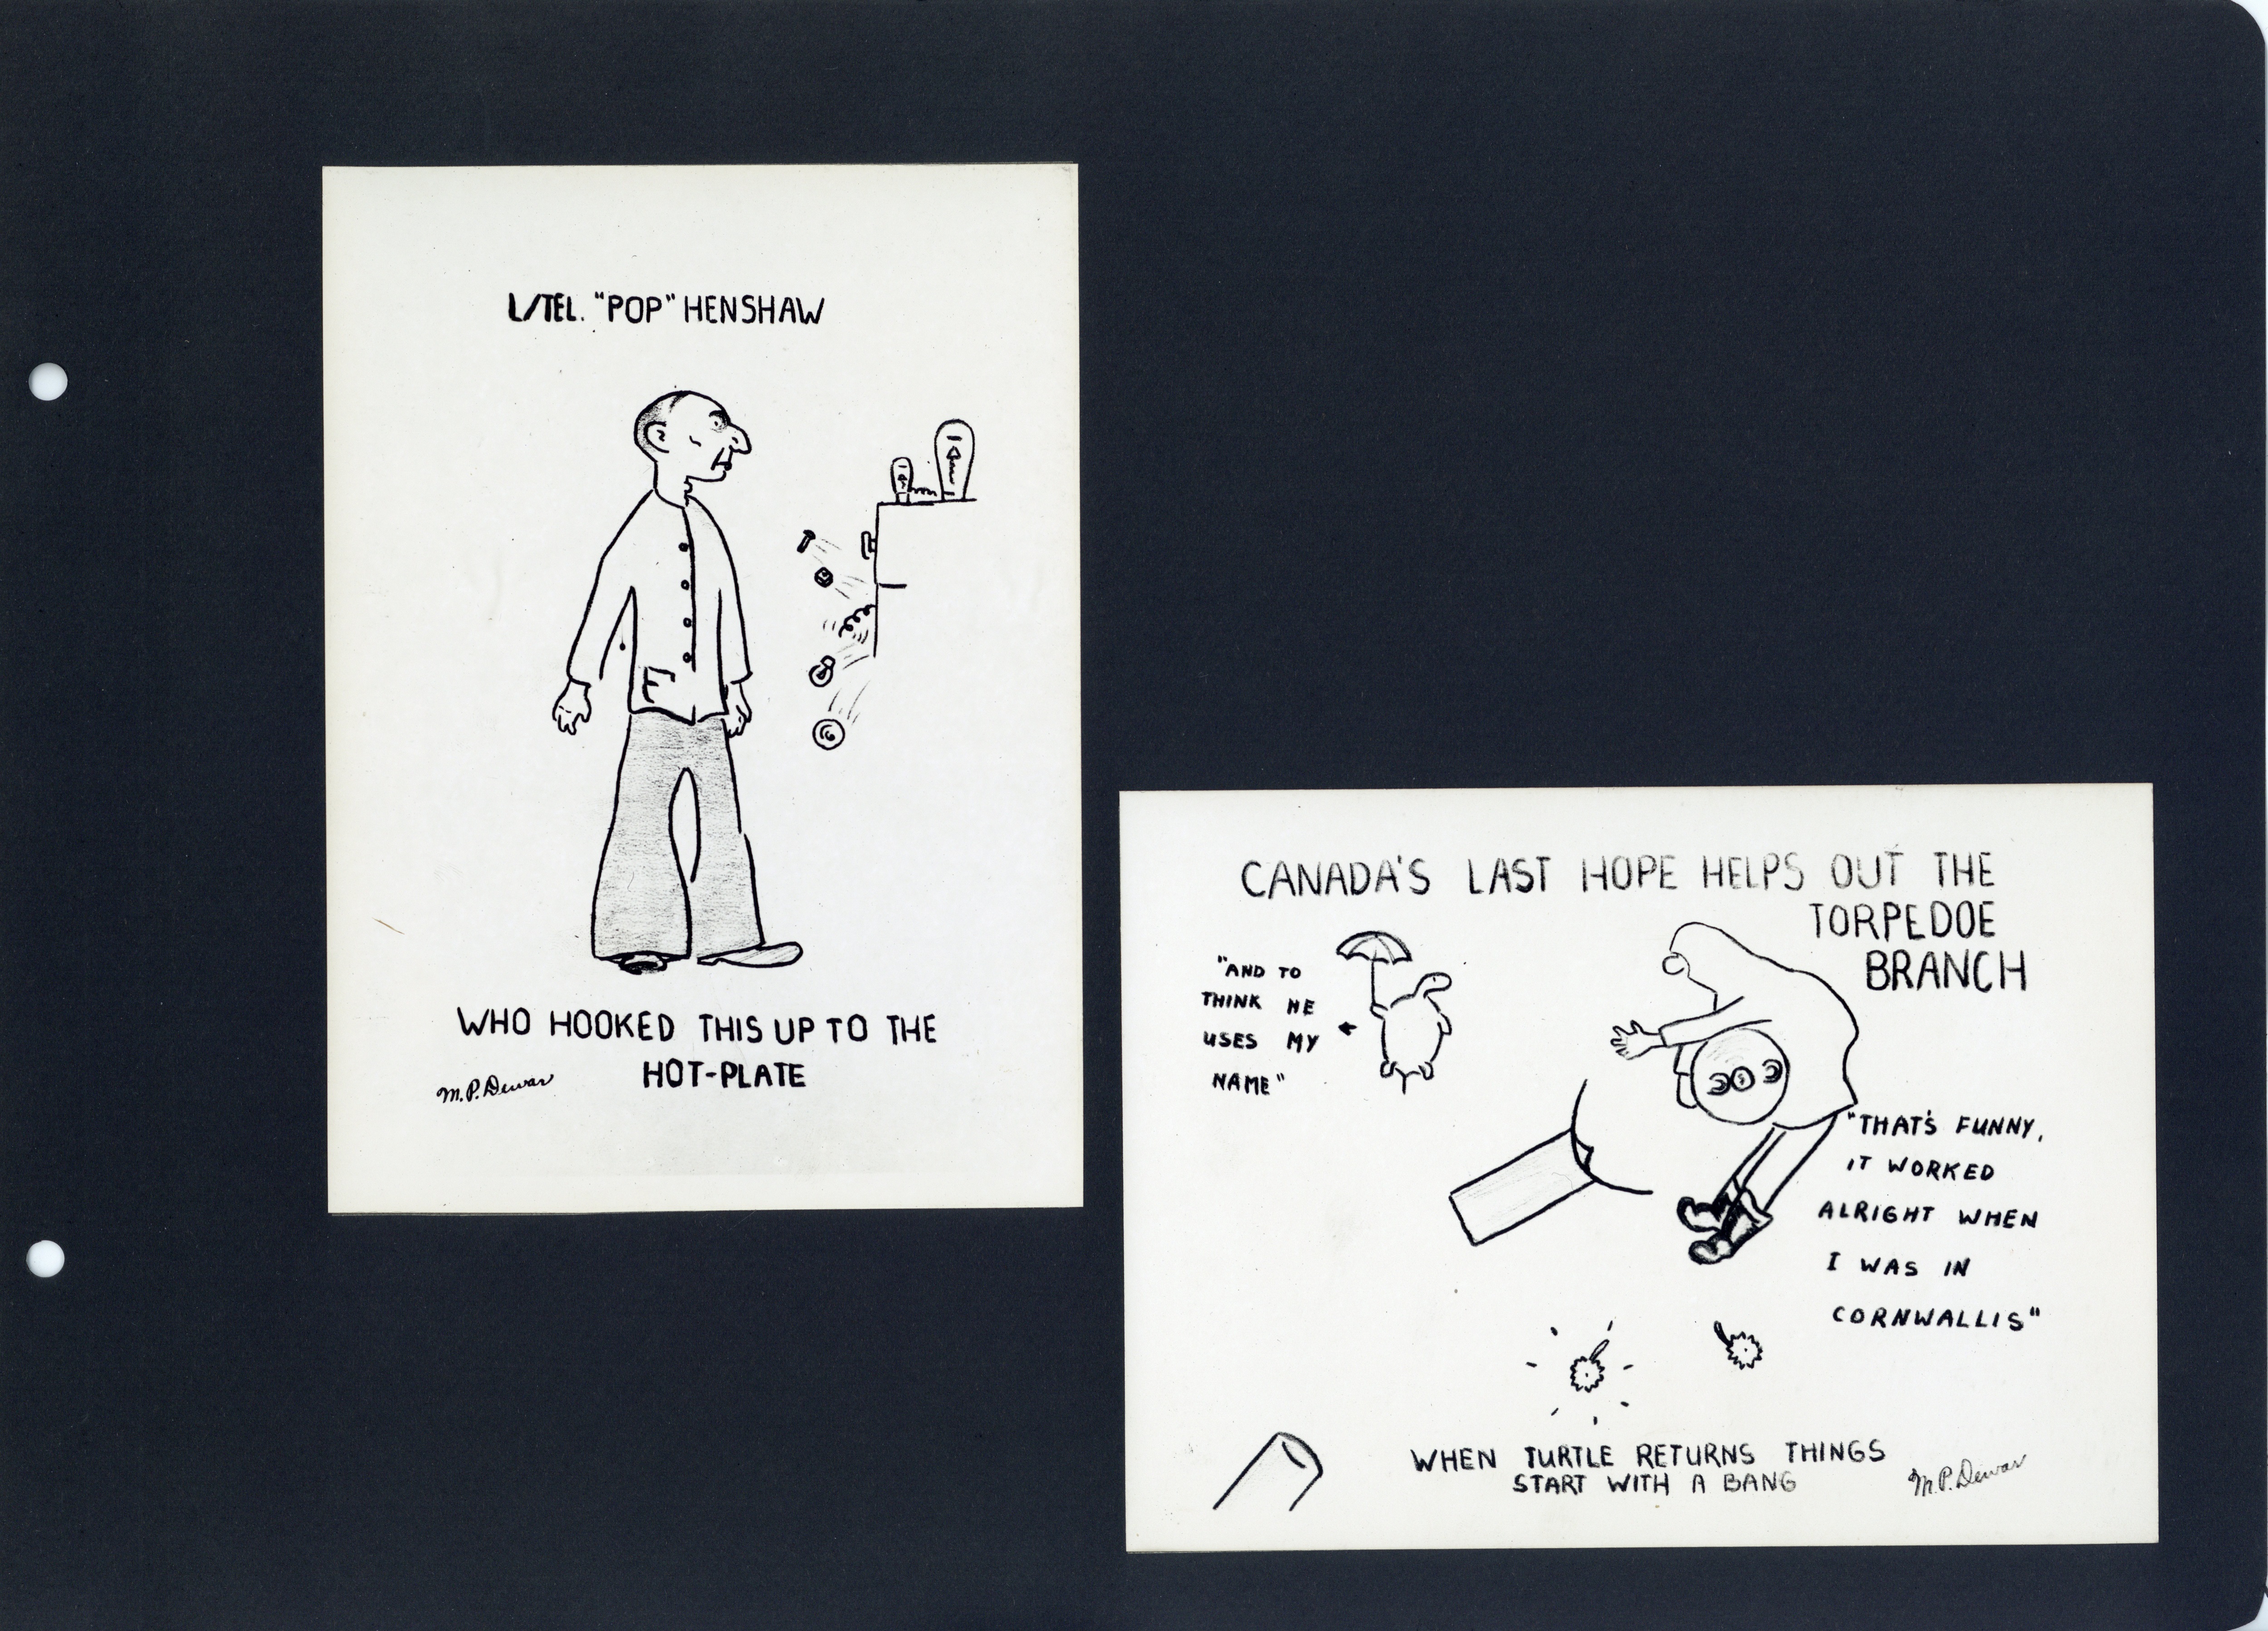 L/TEL. "POP" HENSHAW
WHO HOOKED THIS UP TO THE
HOT-PLATE
M.P. Dewar
CANADA'S LAST HOPE HELPS OUT THE
TORPEDOE
BRANCH
"AND TO
THINK HE
USES MY
NAME"
"THAT'S FUNNY,
IT WORKED
ALRIGHT WHEN
I WAS IN
CORNWALLIS"
WHEN TURTLE RETURNS THINGS
START WITH A BANG
M.P. Dewar